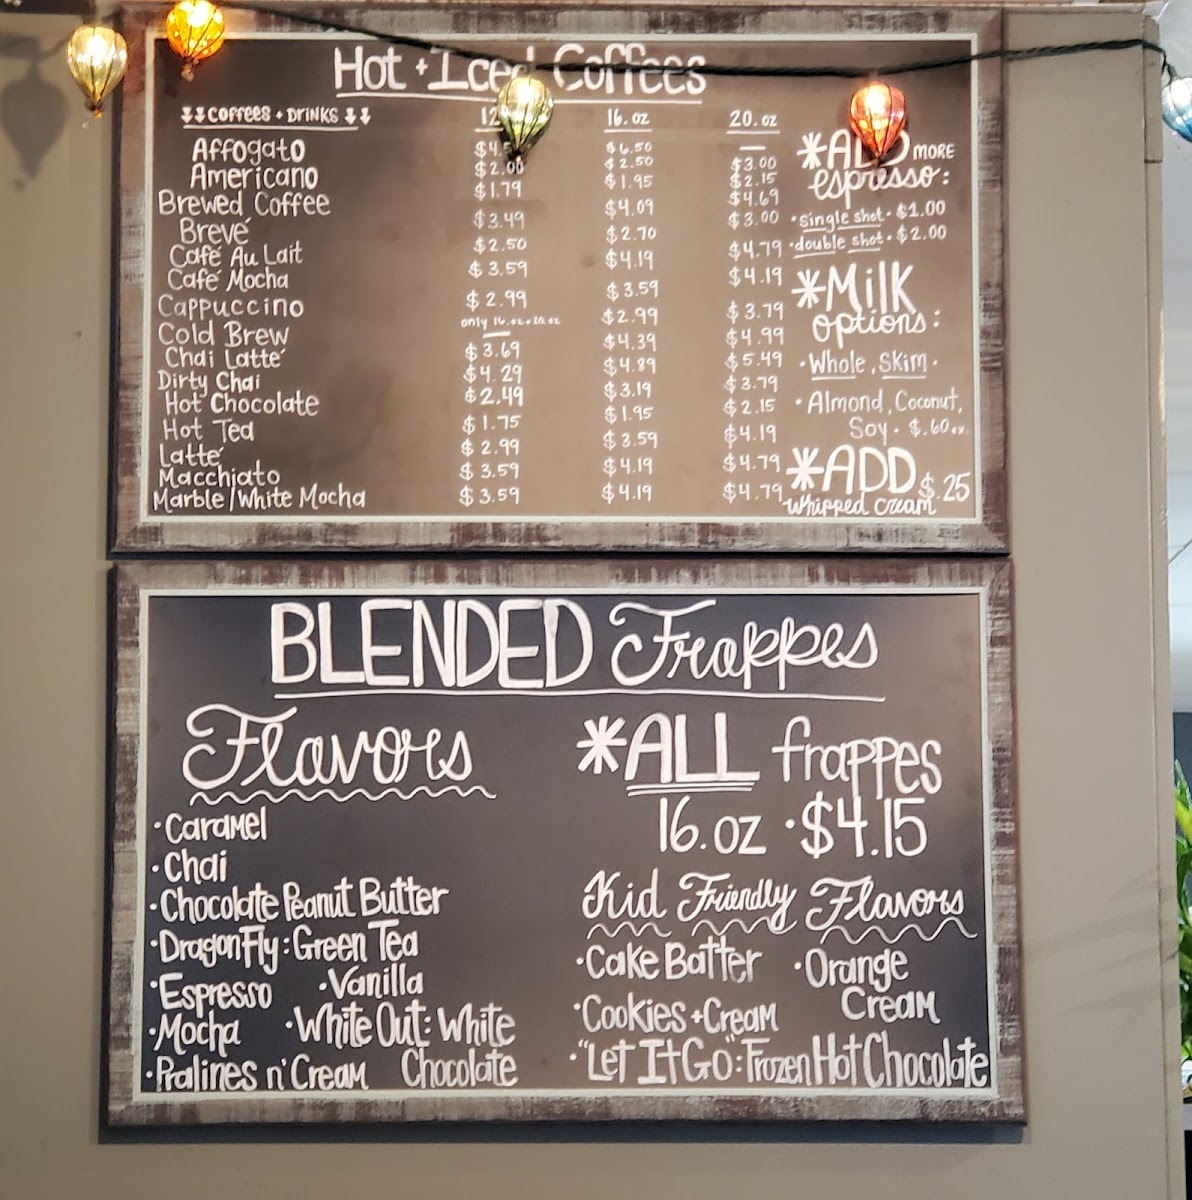 Hot + Iced Coffees
↓↓Coffees + Drinks↓↓ 16. oz 20. oz
Affogato $6.50 —
Americano $2.00 $2.50 $3.00
Brewed Coffee $1.79 $1.95 $2.15
Brevé $3.49 $4.09 $4.69
Café Au Lait $2.50 $2.70 $3.00
Café Mocha $3.59 $4.19 $4.79
Cappuccino $2.99 $3.59 $4.19
Cold Brew only 16.oz+20.oz — $2.99 $3.79
Chai Latté $3.69 $4.39 $4.99
Dirty Chai $4.29 $4.89 $5.49
Hot Chocolate $2.49 $3.19 $3.79
Hot Tea $1.75 $1.95 $2.15
Latté $2.99 $3.59 $4.19
Macchiato $3.59 $4.19 $4.79
Marble/White Mocha $3.59 $4.19 $4.79
*ADD MORE
espresso:
• single shot • $1.00
• double shot • $2.00
*Milk
options:
• Whole, Skim •
• Almond, Coconut,
Soy • $.60ex.
*ADD $.25
whipped cream
BLENDED Frappes
Flavors
• Caramel
• Chai
• Chocolate Peanut Butter
• DragonFly: Green Tea
• Espresso • Vanilla
• Mocha • White Out: White
• Pralines n' Cream Chocolate
*ALL frappes
16.oz • $4.15
Kid Friendly Flavors
• Cake Batter • Orange
• Cookies + Cream Cream
• "Let It Go": Frozen Hot Chocolate